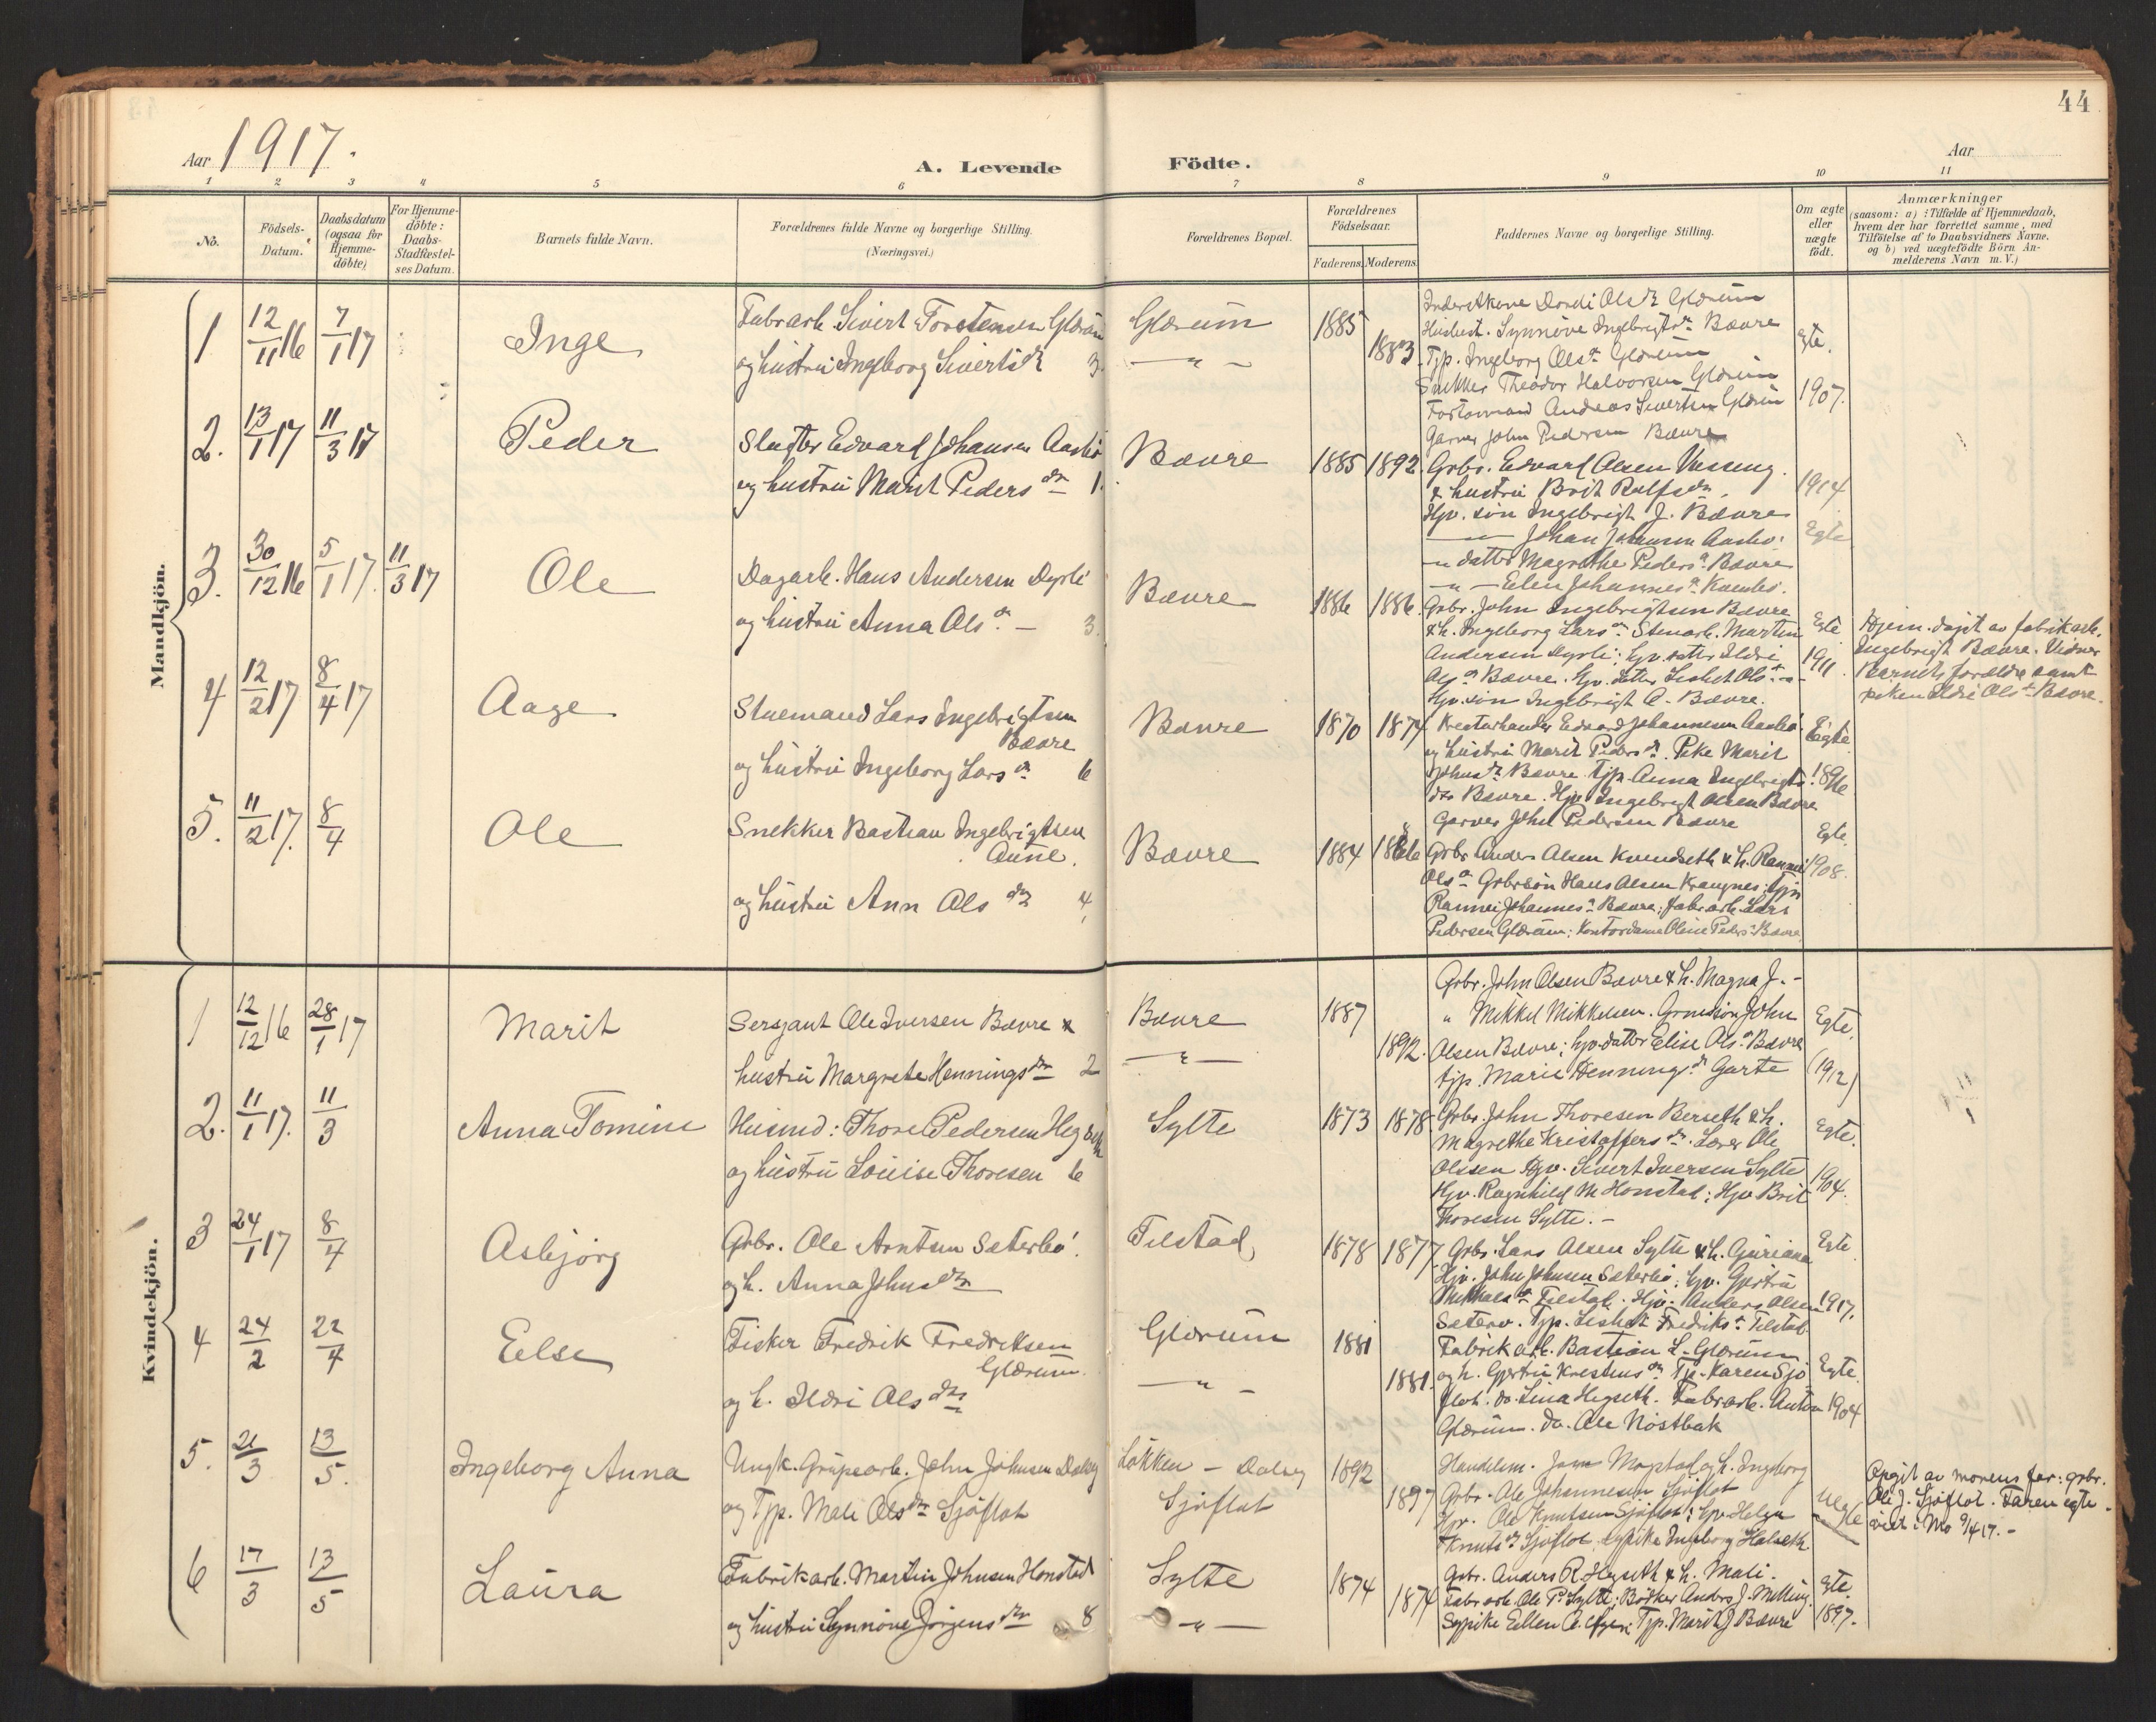 44
Aar 1917.
A. Levende Födte.
Aar
1 2 3 4 5 6 7 8 9 10 11
No.
Födsels-Datum.
Daabsdatum (ogsaa for Hjemme-döbte)
For Hjemme-döbte: Daabs-Stadfæstel-ses Datum.
Barnets fulde Navn.
Forældrenes fulde Navne og borgerlige Stilling.
(Næringsvei.)
Forældrenes Bopæl.
Forældrenes Födselsaar.
Faderens. Moderens.
Faddernes Navne og borgerlige Stilling.
Om ægte eller uægte födt.
Anmærkninger
(saasom: a) i Tilfælde af Hjemmedaab, hvem der har forrettet samme, med Tilföielse af to Daabsvidners Navne. og b) ved uægtefödte Börn An-melderens Navn m. V.)
Mandkjön.
1 12/11 16 7/1 17 Inge
Fabrarb. Sivert Torstensen Glærum
og hustru Ingeborg Sivertsdr 3.
Glærum 1885
– " – 1883
Inderstkone Dordi Olsdr Glærum
Husbest. Synnöve Ingebrigtsdr. Bævre
Tjp. Ingeborg Olsdr Glærum
Snikker Theodor Halvorsen Glærum
Andreas Sivertsen Glærum
Garver John Pedersen Bævre
Egte.
1907.
2. 13/1 17 11/3 17 Peder
Slagter Edvard Johansen Aasbö
og hustru Marit Pedersdr 1.
Bævre 1885 1892.
Grbr. Edvard Olsen
& hustru Brit Rolfsdr.
Hjv. sön Ingebrigt J. Bævre
– " – Johan Johansen Aasbö.
– " datter Magrethe Pedersdr. Bævre
– " – Johannesdr
1914
Egte
3. 30/12 16 5/1 17. 11/3 17 Ole
Dagarb. Hans Andersen Dyrli
og hustru Anna Olsdr. – 3.
Bævre 1886 1886.
Grbr. John Ingebrigtsen Bævre
& h. Ingeborg Larsdr. Stenarb. Martin
Andersen Dyrli; hjv. datter Ildri
Olsdr Bævre. Hjv. datter Lisbet Olsdr. – " –
Hjv. sön Ingebrigt O. Bævre.
Egte
1911.
Hjem. döpt av fabrikarb.
Ingebrigt Bævre. Vidner
Barnets forældre samt
piken Ildri Olsdr Bævre.
4 12/2 17 8/4 17 Aage
Stuemand Lars Ingebrigtsen
Bævre
og hustru Ingeborg Larsdr 6
Bævre 1870 1874
Kreturhandler Edvard Johannesen Aasbö
og hustru Marit Pedersdr. Pike Marit
Johnsdr. Bævre. Tjp. Anna Ingebrigts
dtr Bævre. Hjv Ingebrigt Olsen Bævre
Garver John Pedersen Bævre
Egte
1896
5. 11/2 17. 8/4 Ole
Snekker Bastian Ingebrigtsen
Aune.
og hustru Ann Olsdr 4.
Bævre 1884 1886
Grbr Anders Olsen Kvendseth & h. Rannei
Olsdr Grbrsön Hans Olsen Krangnes; tjp
Rannei Johannesdr Bævre; fabr.arb. Lars
Pedersen Glærum; Kontordame Oleise Pedersdr Bævre
Egte.
1908.
Kvindekjön.
1 12/12 16 28/1 17 Marit
Sersjant Ole Iversen Bævre &
hustru Margrete Henningsdtr 2
Bævre 1887
– " – 1892.
Grbr. John Olsen Bævre & h. Magna J. –
" Mikkel Mikkelsen. Grmdsön John
Olsen Bævre; hjv. datter Elise Olsdr Bævre
tjp. Marie Henningsdr. Garte
Egte.
(1912)
2. 11/1 17. 11/3 Anna Tomine
Husmd: Thore Pedersen Hegseth
og hustru Louise Thoresen 6
Sylte 1873 1878
Grbr. John Thoresen Berseth & h.
Magrethe Kristoffersdr. Lærer Ole
Olssen Hjv. Sivert Iversen Sylte
Hjv. Ragnhild M Honstad; Hjv Brit
Thoresen Sylte. –
Egte.
1904.
3 24/1 17 8/4 Asbjörg
Grbr. Ole Arntsen Sæterbö.
og h. Anna Johnsdtr
Telstad 1878 1877.
Grbr. Lars Olsen Sylte & h. Guriana
Hjv. John Johnsen Sæterbö; hjv. Gjertru
Mikkelsdr Telstad. Hjv. Anders Olsen
Sæterö. Tjp. Lisbet Fredriksdr Telstad.
Egte
1917.
4 24/2 22/4 Eelse
Fisker Fredrik Fredriksen
Glærum.
og h. Ildri Olsdtr
Glærum 1881
– " – 1881.
Fabrikarb. Bastian L. Glærum
og h. Gjertru Kristensdr Tjp. Karen Sjö
flot. do. Lina Hegseth. Fabrarb. Anton
Glærum. do. Ole Nöstbak
Egte.
1904
5. 21/3 13/5. Ingeborg Anna
Ungk. Grubearb. John Johnsen Dalseg
og Tjp. Mali Olsdtr Sjöflot
Lökken – Dalseg 1892
Sjöflot 1897
Handelsm. Jon Mogstad og h. Ingeborg
Grbr. Ole Johannesen Sjöflot
Hjv. Ole Knutsen Sjöflot; hjv. Helga
Knutsdr Sjöflot. Sypike Ingeborg Halseth
Uegte
Opgit av morens far: grbr.
Ole J. Sjöflot. Faren egte-
viet i Mo 9/4 17. –
6 17/3 13/5 Laura
Fabrikarb. Martin Johnsen Honstad
og hustru Synnöve Jörgensdtr 8
Sylte 1874
– " – 1874
Grbr. Anders R. Hegseth & h. Mali.
Fabr arb. Ole P. Sylte; Bötker Anders J. Melling.
Sypike Ellen; Tjp. Marit J Bævre
Egte.
1897.